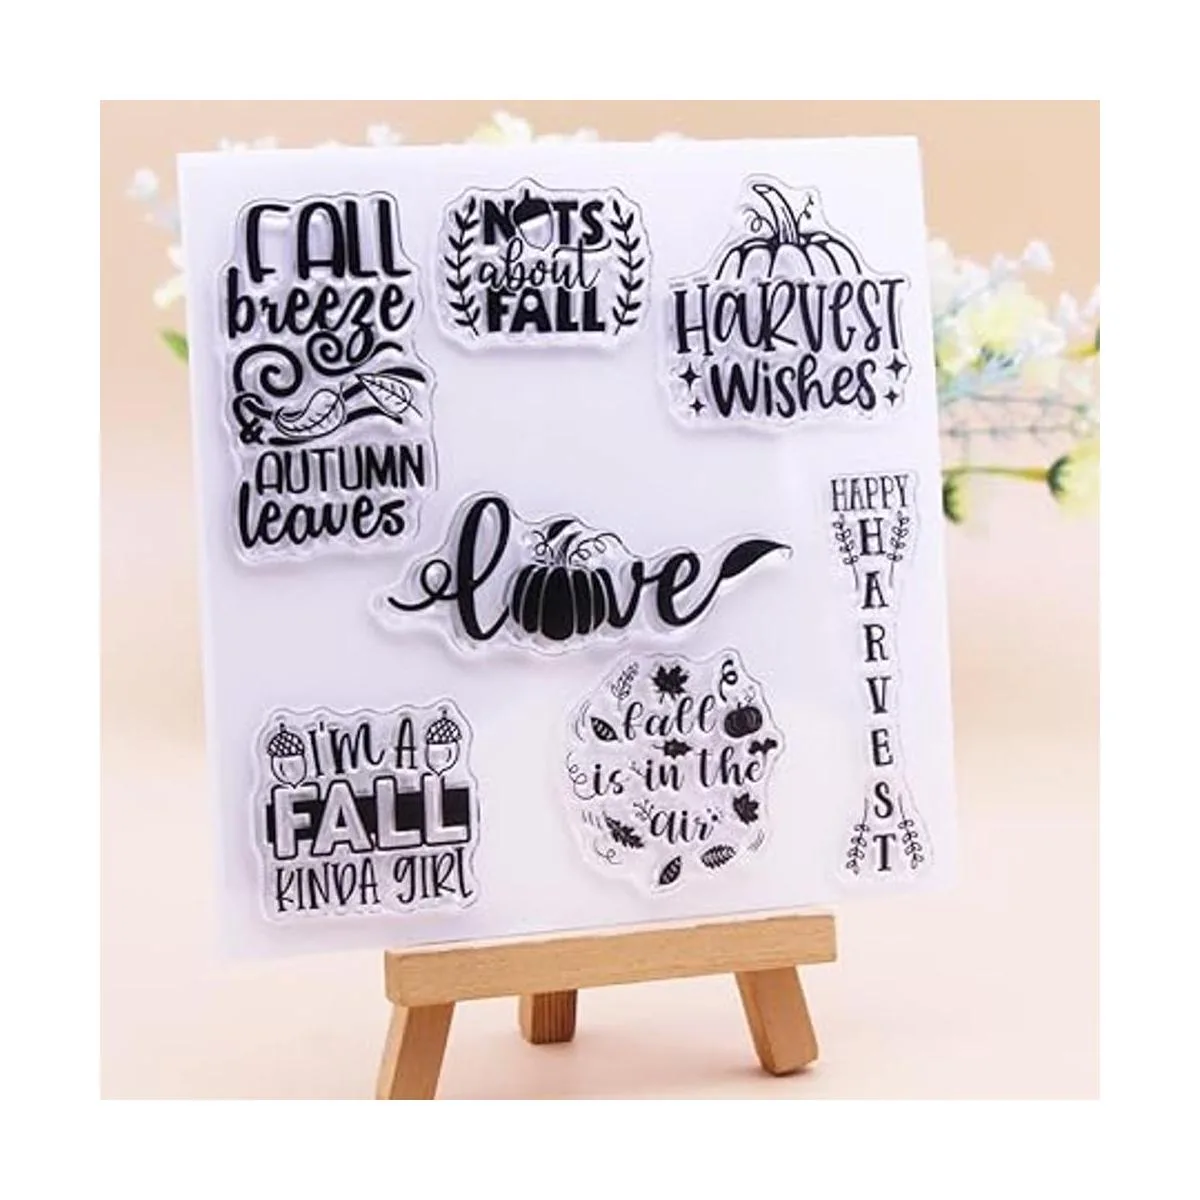 FALL
breeze
&
AUTUMN
leaves
NUTS
about
FALL
HARVEST
Wishes
love
HAPPY
HARVEST
I'M A
FALL
KINDA GIRL
fall
is in the
air